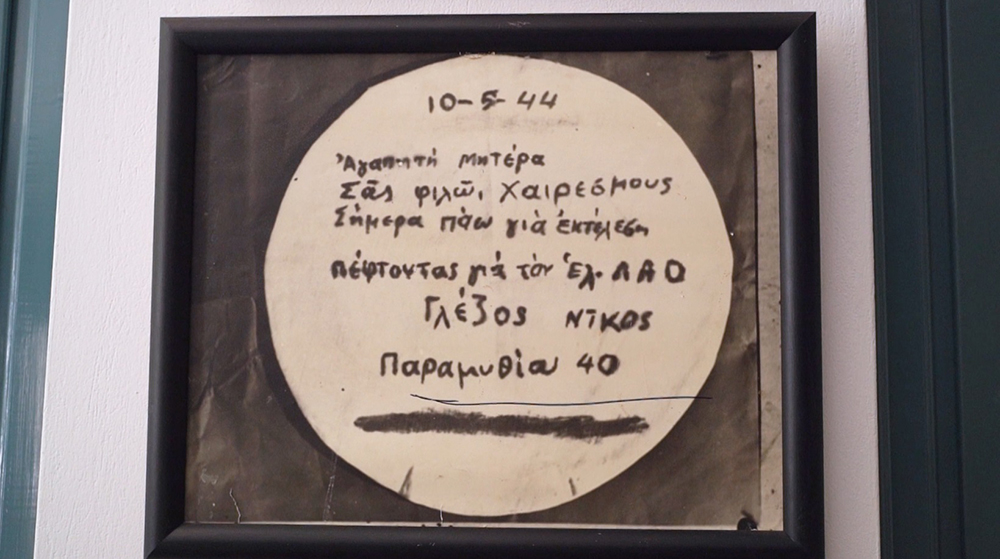 10-5-44
Ἀγαπητή Μητέρα
Σᾶς φιλῶ, Χαιρεσμους
Σήμερα πάω γιὰ ἐκτέλεση
πέφτοντας γιὰ τὸν Ἑλ. ΛΑΟ
Γλέζος Νῖκος
Παραμυθίας 40